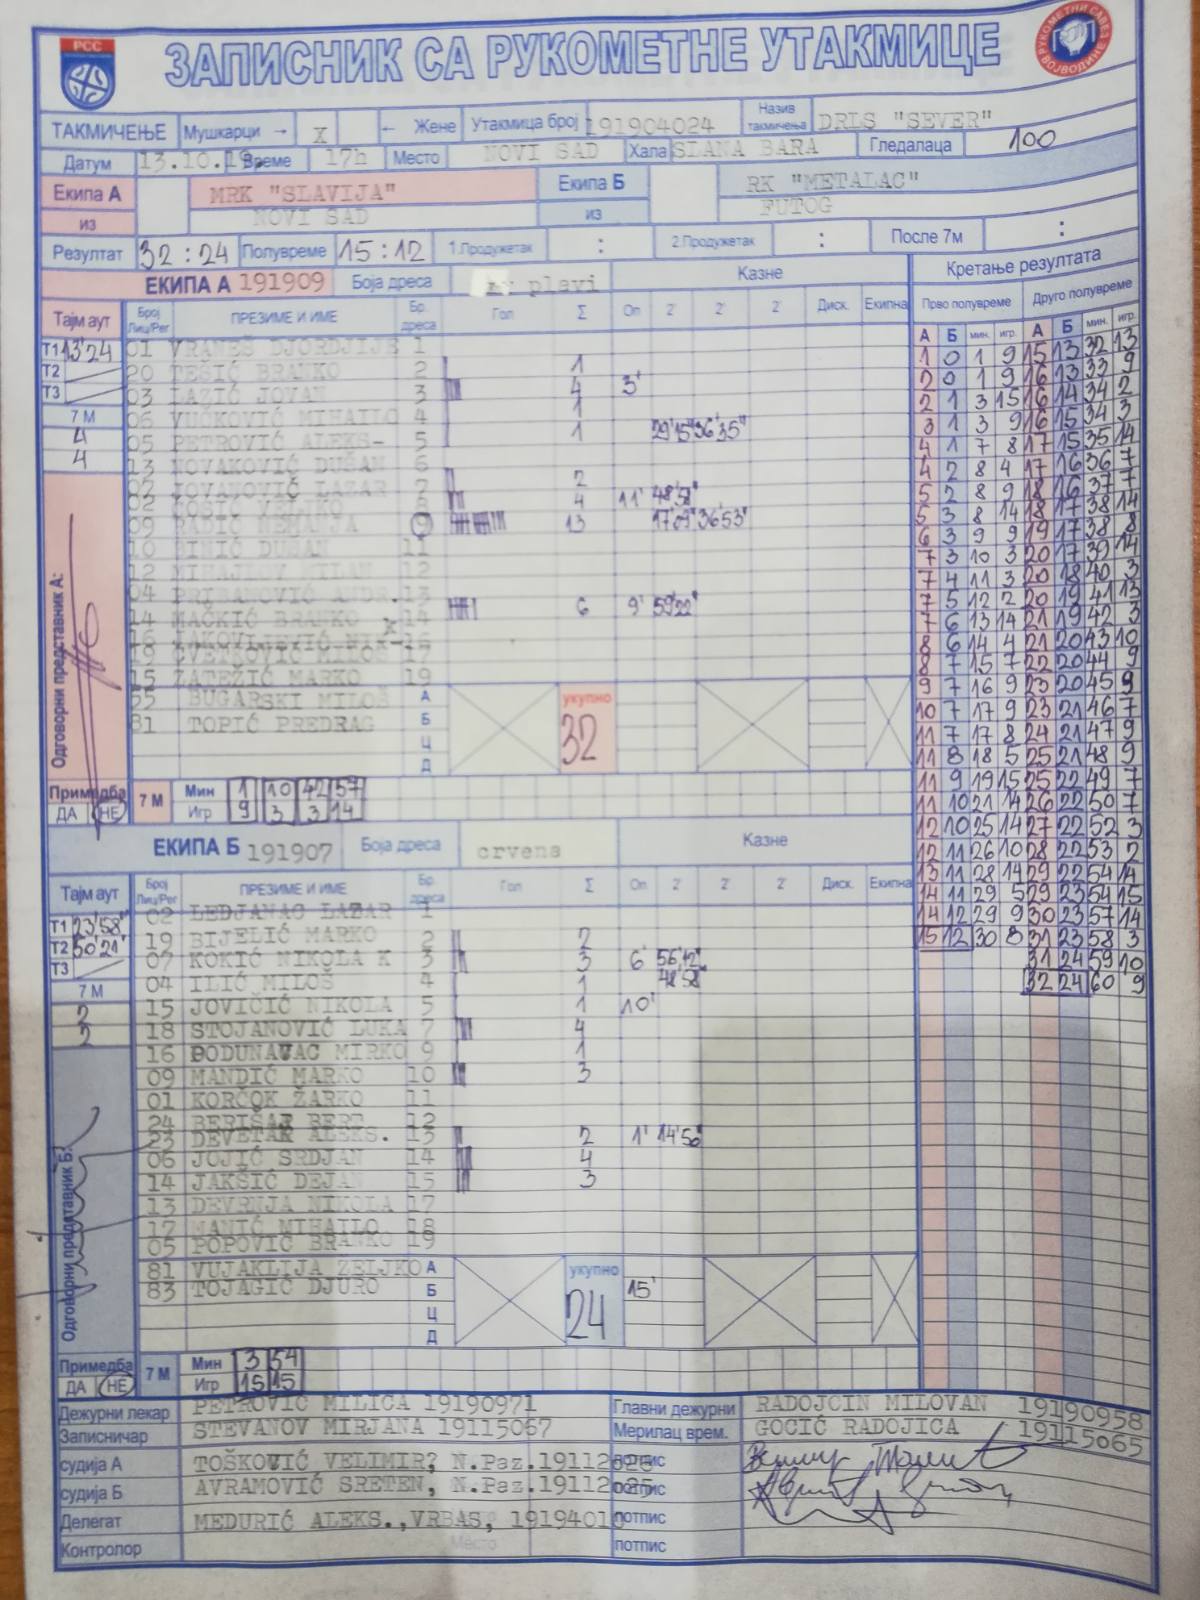 РСС
ЗАПИСНИК СА РУКОМЕТНЕ УТАКМИЦЕ
РУКОМЕТНИ САВЕЗ ВОЈВОДИНЕ
ТАКМИЧЕЊЕ Мушкарци → X ← Жене Утакмица број 191904024 Назив такмичења DRLS "SEVER"
Датум 13.10.19. Време 17h Место NOVI SAD Хала SLANA BARA Гледалаца 100
Екипа А MRK "SLAVIJA" Екипа Б RK "METALAC"
из NOVI SAD из FUTOG
Резултат 32:24 Полувреме 15:12 1.Продужетак : 2.Продужетак : После 7м :
ЕКИПА А 191909 Боја дреса plavi Казне Кретање резултата
Прво полувреме Друго полувреме
Тајм аут Број Лиц/Рег ПРЕЗИМЕ И ИМЕ Бр. дреса Гол Σ Оп 2' 2' 2' Диск. Екипна
А Б мин. игр. А Б мин. игр.
T1 13'24 01 VRAMEŠ DJORDJIJE 1
T2 20 TEŠIĆ BRANKO 2 1
T3 03 LAZIĆ JOVAN 3 4 3'
7 М 06 VUČKOVIĆ MIHAILO 4 1
4 05 PETROVIĆ ALEKS- 5 1 29'15" 36'35"
4 13 NOVAKOVIĆ DUŠAN 6
07 JOVANOVIĆ LAZAR 7 2
02 ĆOSIĆ VELJKO 8 4 11'
09 RADIĆ NEMANJA 9 13 17'09" 36'53"
10 SIMIĆ DUŠAN 11
12 MIHAJLOV MILAN 12
04 PRIBANOVIĆ ANDR. 13
14 MAČKIĆ BRANKO 14 6 9' 59'22"
16 JAKOVLJEVIĆ NIK- 16
19 CVETKOVIĆ MILOŠ 17
15 ZATEŽIĆ MARKO 19
55 BUGARSKI MILOŠ А укупно 32
81 TOPIĆ PREDRAG Б
Ц
Д
Одговорни представник А:
Примедба ДА НЕ
7 М Мин 1 10 42 57
Игр 9 3 3 14
1 0 1 9 15 13 32 13
2 0 1 9 16 13 33 9
2 1 3 15 16 14 34 2
3 1 3 9 16 15 34 3
4 1 7 8 17 15 35 14
4 2 8 4 17 16 36 7
5 2 8 9 18 16 37 7
5 3 8 14 18 17 38 14
6 3 9 9 19 17 38 8
7 3 10 3 20 17 39 14
7 4 11 3 20 18 40 3
7 5 12 2 20 19 41 13
7 6 13 14 21 19 42 3
8 6 14 4 21 20 43 10
8 7 15 7 22 20 44 9
9 7 16 9 23 20 45 9
10 7 17 9 23 21 46 7
11 7 17 8 24 21 47 9
11 8 18 5 25 21 48 9
11 9 19 15 25 22 49 7
11 10 21 14 26 22 50 7
12 10 25 14 27 22 52 3
12 11 26 10 28 22 53 2
13 11 28 14 29 22 54 14
14 11 29 5 29 23 54 15
14 12 29 9 30 23 57 14
15 12 30 8 31 23 58 3
31 24 59 10
32 24 60 9
ЕКИПА Б 191907 Боја дреса crvena Казне
Тајм аут Број Лиц/Рег ПРЕЗИМЕ И ИМЕ Бр. дреса Гол Σ Оп 2' 2' 2' Диск. Екипна
T1 23'58" 02 LEDJANAC LAZAR 1
T2 50'21" 19 BIJELIĆ MARKO 2 2
T3 07 KOKIĆ NIKOLA K 3 3 6' 56'12"
7 М 04 ILIĆ MILOŠ 4 1 48'58"
2 15 JOVIČIĆ NIKOLA 5 1 10'
2 18 STOJANOVIĆ LUKA 7 4
16 PODUNAVAC MIRKO 9 1
09 MANDIĆ MARKO 10 3
01 KORČOK ŽARKO 11
24 12
23 DEVETAK ALEKS. 13 2 1' 14'50"
06 JOJIĆ SRDJAN 14 4
14 JAKŠIĆ DEJAN 15 3
13 DEVRNJA NIKOLA 17
17 MANIĆ MIHAILO 18
05 POPOVIĆ BRANKO 19
81 VUJAKLIJA ZELJKO А укупно 24
83 TOJAGIĆ DJURO Б 15'
Ц
Д
Одговорни представник Б:
Примедба ДА НЕ
7 М Мин 3 54
Игр 15 15
Дежурни лекар PETROVIĆ MILICA 19190971 Главни дежурни RADOJCIN MILOVAN 19190958
Записничар STEVANOV MIRJANA 19115067 Мерилац врем. GOCIĆ RADOJICA 19115065
судија А TOŠKOVIĆ VELIMIR, N.Paz. потпис
судија Б AVRAMOVIĆ SRETEN, N.Paz. потпис
Делегат MEDURIĆ ALEKS.,VRBAS, потпис
Контролор Место потпис